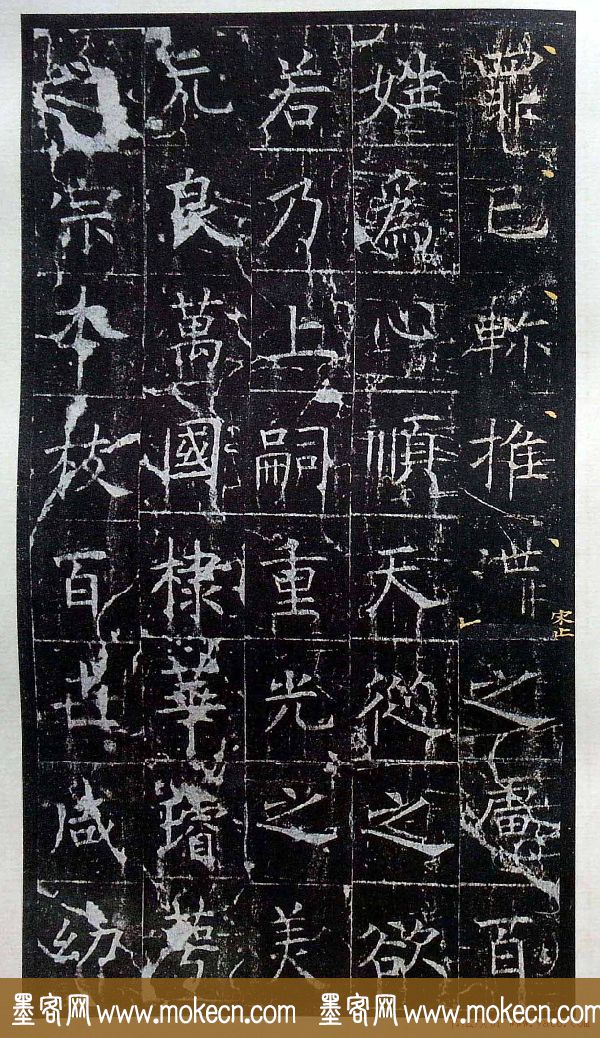 罪己軫推溝之慮百
姓為心順天從之欲
若乃上嗣重光之美
元良萬國棣華增萼
之宗本枝百世咸幼
宋止
墨客网 www.mokecn.com 墨客网 www.mokecn.com